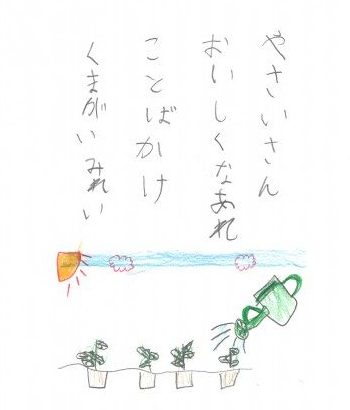 やさいさん
おいしくなあれ
ことばかけ
くまがいみれい